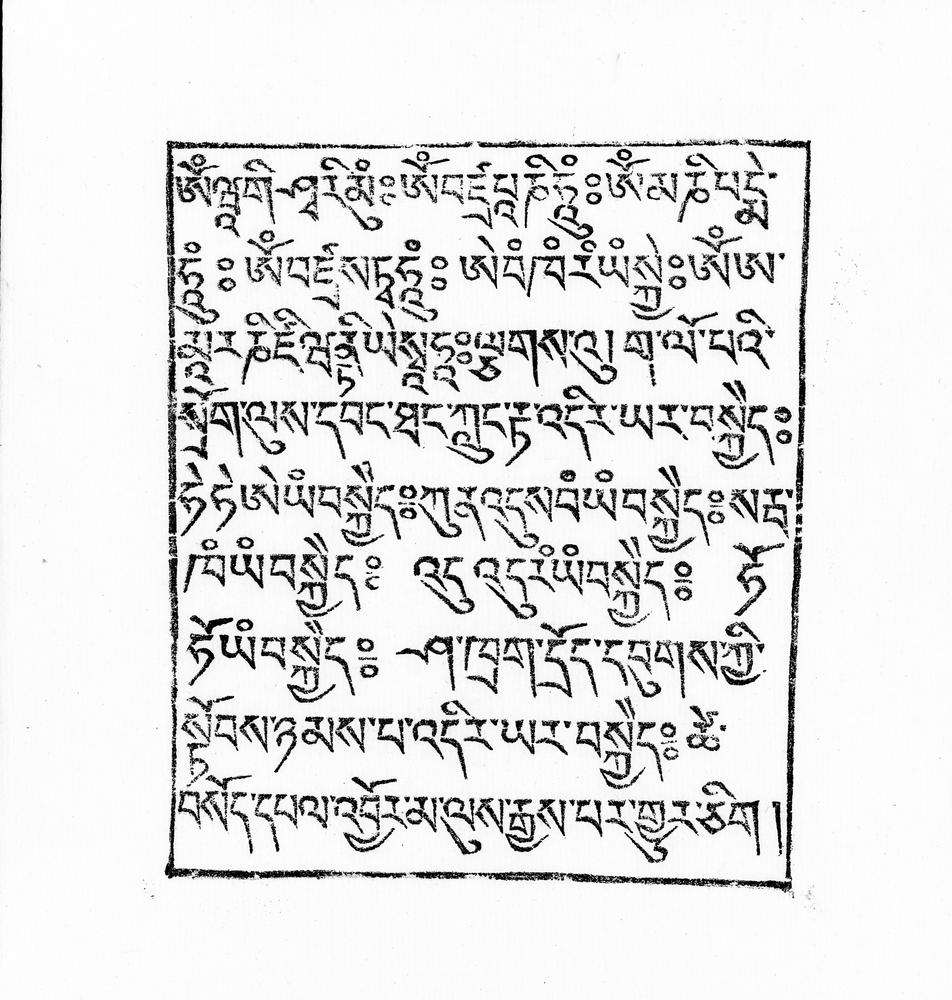 ཨོཾ་ཝཱ་གི་ཤྭ་རི་མུཾ༔ ཨོཾ་བཛྲ་པཱ་ཎི་ཧཱུྃ༔ ཨོཾ་མ་ཎི་པདྨེ་
ཧཱུྃ༔ ཨོཾ་བཛྲ་སཏྭ་ཧཱུྃ༔ ཨེ་བཾ་ཁཾ་རཾ་ཡཾ་སྐྱེ༔ ཨོཾ་ཨ་
རཎི་ཛི་ཝནྟི་ཡེ་སྭཱཧཱ༔ ཕྱུགས་འུ། གཱ་ལོ་པའི་
སྲོག་ལུས་དབང་ཐང་ཀླུང་རྟ་འདིར་ཡར་བསྐྱེད༔
ཧེ་ཧེ་ཨེ་ཡཾ་བསྐྱེད༔ ཀུན་འདུས་བཾ་ཡཾ་བསྐྱེད༔ སརྦ་
ཁཾ་ཡཾ་བསྐྱེད༔ འདུ་འདུ་རཾ་ཡཾ་བསྐྱེད༔ ཧོ་
ཧོ་ཡཾ་བསྐྱེད༔ ཤ་ཁྲག་དྲོད་དབུགས་ཀྱི་
སྟོབས་ཉམས་པ་འདིར་ཡར་བསྐྱེད༔ ཚེ་
བསོད་དཔལ་འབྱོར་མ་ལུས་རྒྱས་པར་གྱུར་ཅིག །